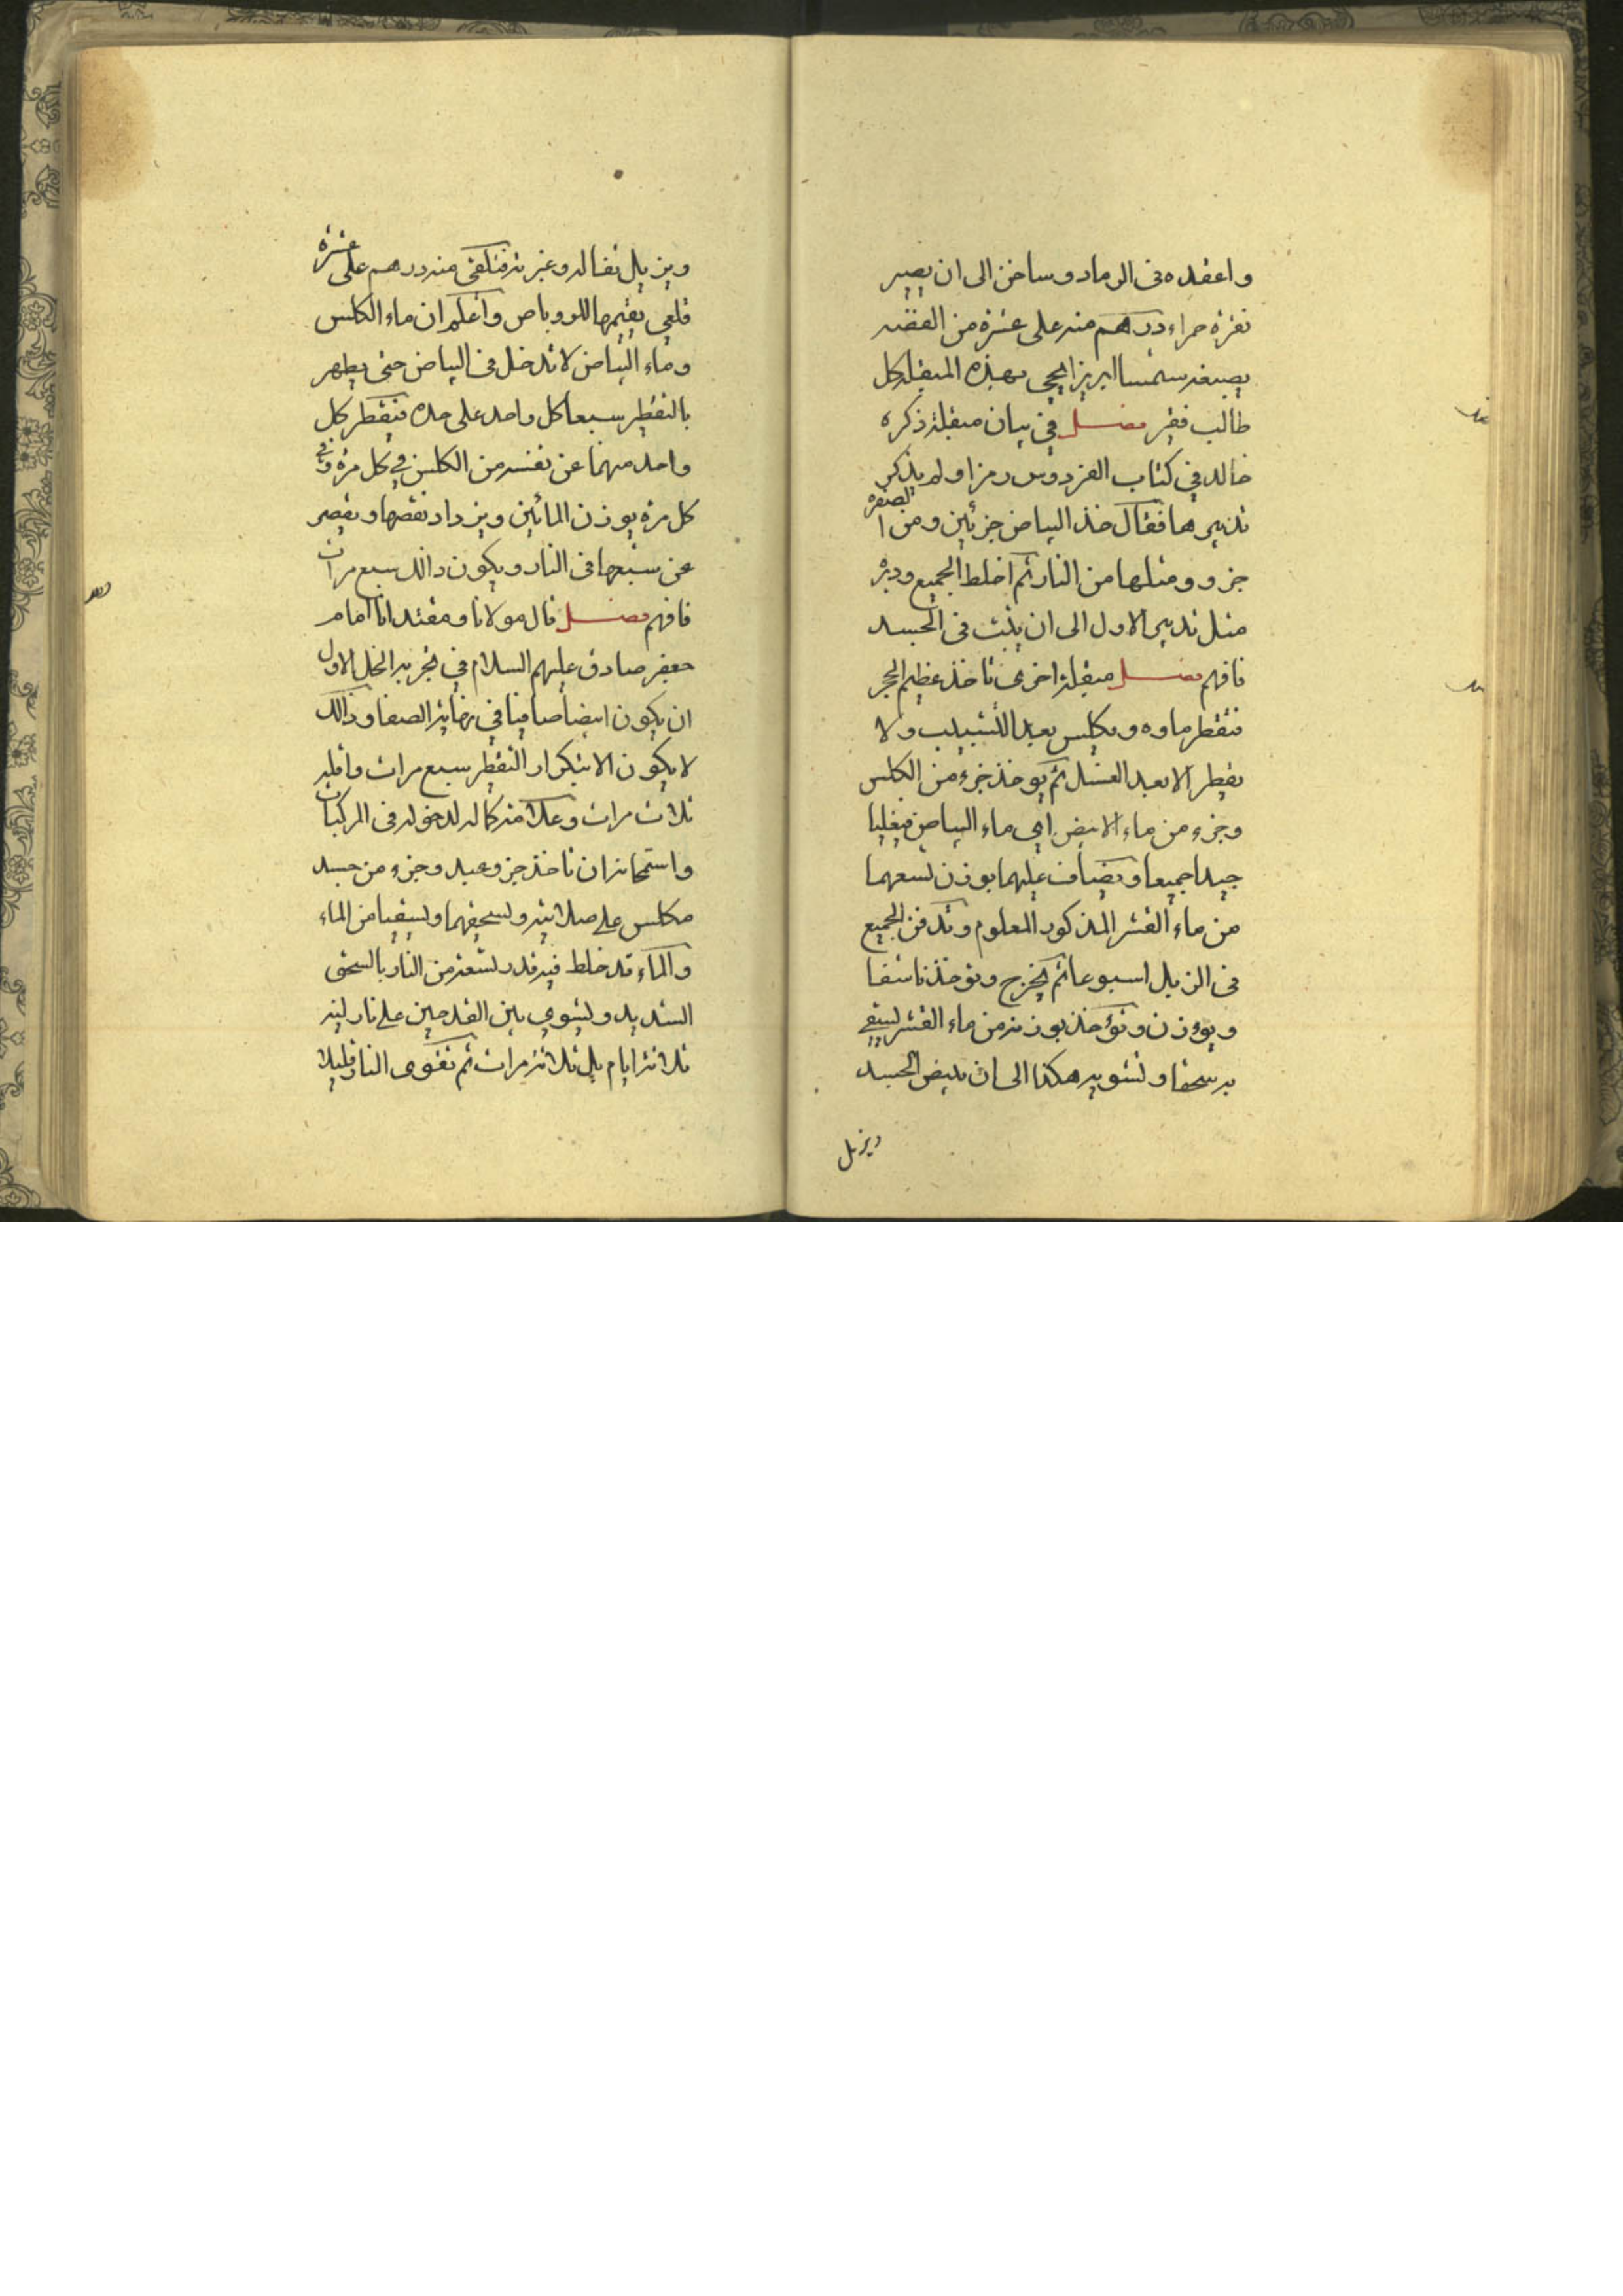 واعقده فى الرماد وساخن الى ان يصير
نقرة حمراء درهم منه على عشرة من الفضة
يصبغه شمسا ابريزا يحي بهذه المنقلة كل
طالب فقير فصل في بيان منقلة ذكره
خالد في كتاب الفردوس رمزا ولم يذكر
تدبيرها فقال خذ البياض جزئين ومن الصفرة
جزو ومثلها من النار ثم اخلط الجميع ودبره
مثل تدبير الاول الى ان يثبت فى الجسد
فافهم فصل منقلة اخرى تاخذ عظيم الحجر
فتقطر ماوه ويكلس بعد التشبيب ولا
يقطر الا بعد الغسل ثم يوخذ جزء من الكلس
وجزء من ماء الابيض اي ماء البياض فيغليا
جيدا جميعا ويضاف عليهما بوزن تسعهما
من ماء القشر المذكور المعلوم وتدفن الجميع
فى الزبل اسبوعا ثم يخرج وتوخذ ناشفا
ويوزن وتؤخذ بوزنه من ماء القشر ليسقي
به سحقا وتشويه هكذا الى ان يبيض الجسد
ويزيل
ويزيل ثفاله وغبرته فتلقى منه درهم على عشرة
قلعي يقيمها للوو باص واعلم ان ماء الكلس
وماء البياض لا تدخل فى البياض حتى يطهر
بالتقطير سبعا كل واحد على حده فيقطر كل
واحد منهما عن نفسه من الكلس في كل مرة وفي
كل مرة يوزن المائين ويزداد نقصها ويقصر
عن سبعها فى النار ويكون ذالك سبع مرات
فافهم فصل قال مولانا ومقتدانا امام
جعفر صادق عليهم السلام في تجربه الخل الاول
ان يكون ايضا صافيا في نهاية الصفا وذالك
لا يكون الا بتكرار التقطير سبع مرات واقله
ثلاث مرات وعلامة كماله لدخوله فى المركبات
وامتحانه ان تاخذ جزو عبد وجزء من جسد
مكلس على صلاية وتسحقهما وتسقيا من الماء
والماء قد خلط فيه قدر تسعة من النار بالسحق
الشديد وتشوي بين القدحين على نار لينه
ثلاثة ايام بل ثلاثة مرات ثم تقوى النار قليلا